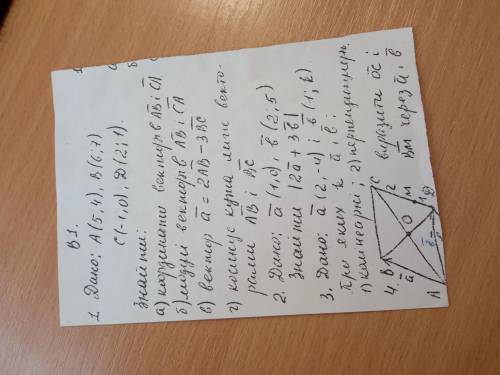 В 1.
1. Дано: A(5,4), B(6;7)
C(-1,0), D(2;1).
Знайти:
а) координати векторів AB і CA
б) модулі векторів AB і CA
в) вектор a = 2AB - 3BC
г) косинус кута між векто-
рами AB і BC
2. Дано: a (1,0), b (2;5)
Знайти |2a + 3b|
3. Дано: a (2,-4) і b (1; k)
При яких k a і b:
1) колінеарні; 2) перпендикулярн.
4. B C виразити OC і
BM через a і b
a O 2
M
b 1
A D